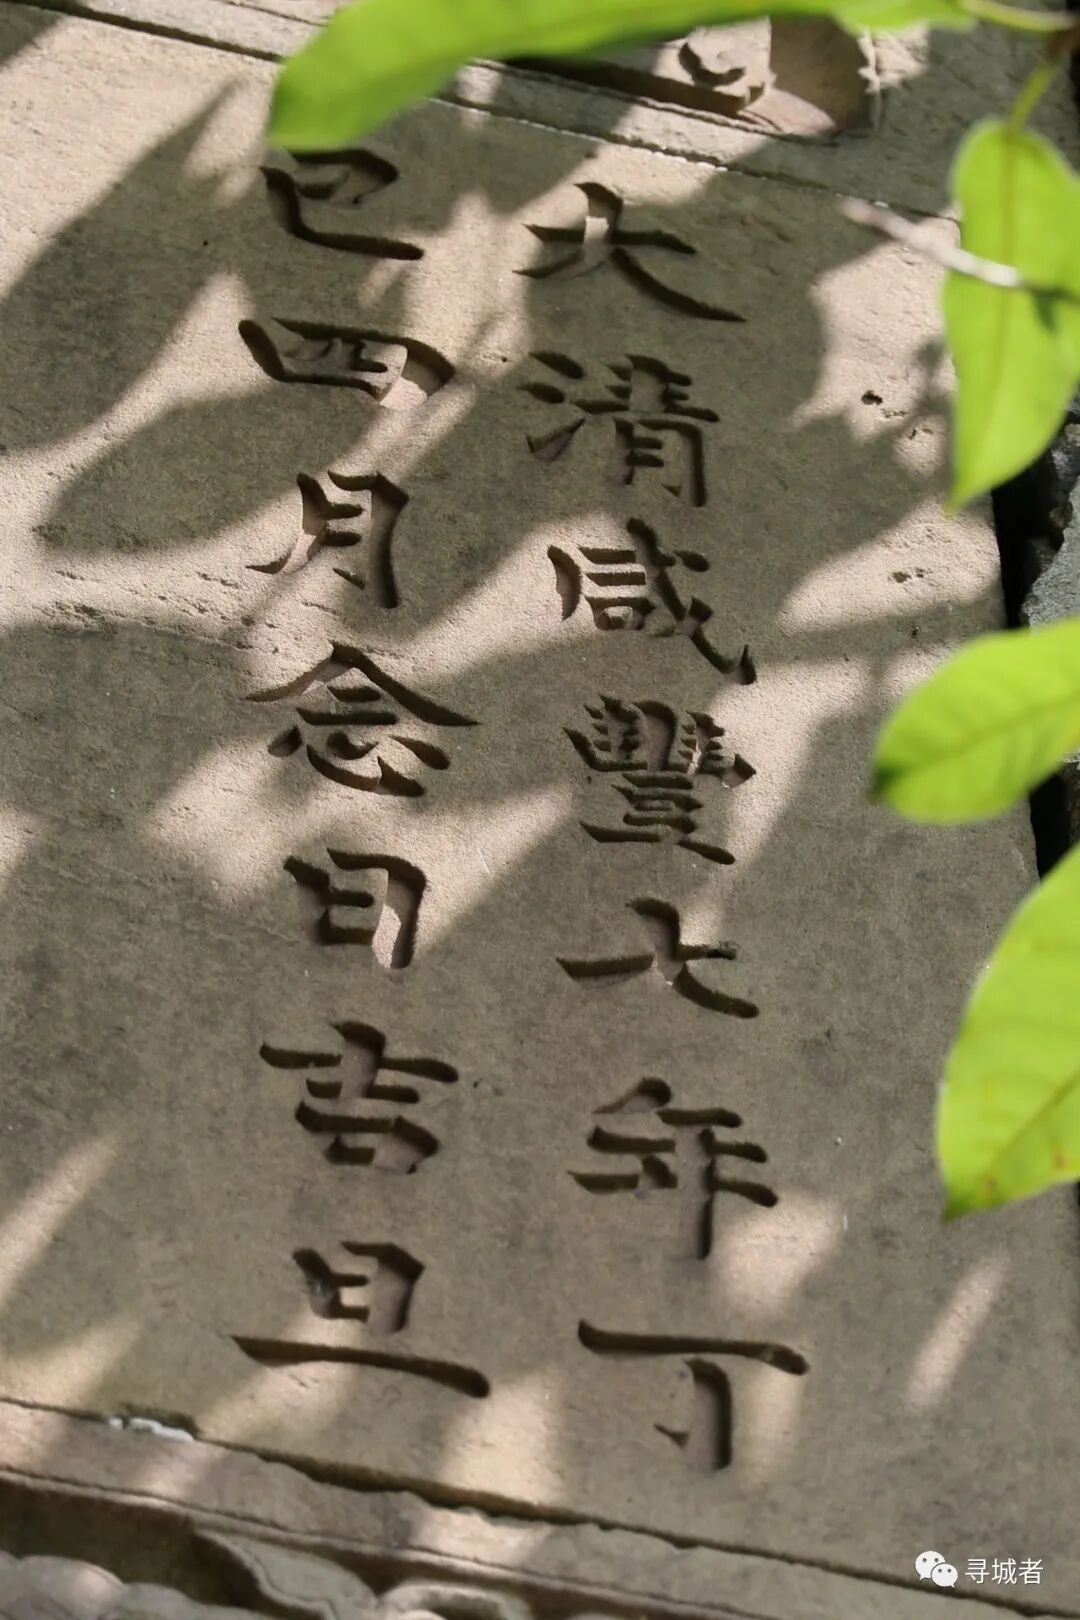 大清咸豐七年丁
巳四月念日吉旦
寻城者